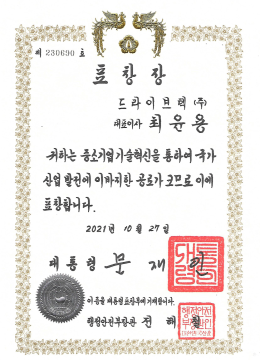 제 230690 호
표 창 장
드라이브텍 (주)
대표이사 최 윤 용
귀하는 중소기업 기술혁신을 통하여 국가
산업 발전에 이바지한 공로가 크므로 이에
표창합니다.
2021년 10월 27일
대 통 령 문 재 인
이 증을 대통령표창부에 기재합니다.
행정안전부장관 전 해 철